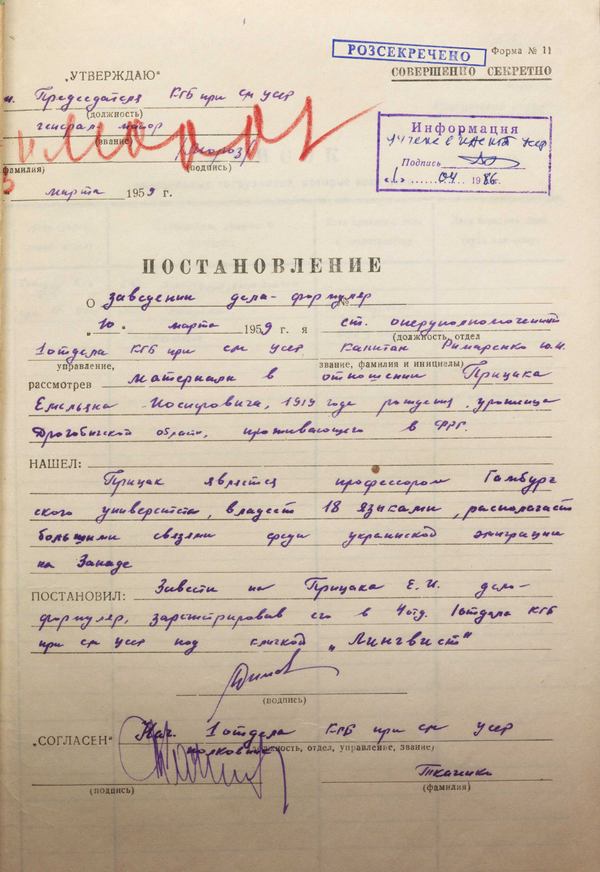 РОЗСЕКРЕЧЕНО
Форма № 11
СОВЕРШЕННО СЕКРЕТНО
„УТВЕРЖДАЮ“
Председателя КГБ при см усср
(должность)
генерал майор
(звание)
(фамилия) (подпись)
марта 1959 г.
Информация
учтена в
Подпись
„1“ 04 1986
ПОСТАНОВЛЕНИЕ
О заведении дела-формуляр №
„10“ марта 1959 г. я ст. оперуполномоченный
(должность, отдел
1 отдела КГБ при см усср капитан Римаренко Ю.И.
управление, звание, фамилия и инициалы)
рассмотрев материалы в отношении Прицака
Емельяна Иосифовича, 1919 года рождения, уроженца
Дрогобычской области, проживающего в ФРГ.
НАШЕЛ:
Прицак является профессором Гамбург
ского университета, владеет 18 языками, располагает
большими связями среди украинской эмиграции
на Западе
ПОСТАНОВИЛ: Завести на Прицака Е.И. дело-
формуляр, зарегистрировав его в 4 отд. 1 отдела КГБ
при см усср под кличкой „Лингвист“
(подпись)
„СОГЛАСЕН“ Нач. 1 отдела КГБ при см усср
полковник
(должность, отдел, управление, звание)
Ткаченко
(подпись) (фамилия)